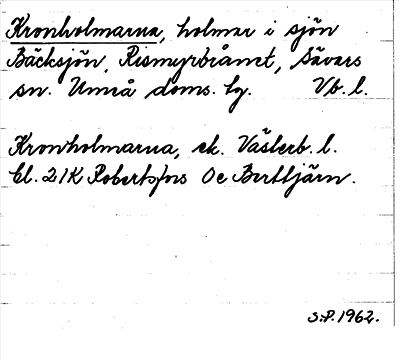 Kronholmarna, holmar i sjön
Bäcksjön, Rismyrbrånet, Sävars
sn. Umeå doms. hg. Vb. l.
Kronholmarna, ek. Västerb. l.
bl. 21K Robertsfors 0c Berttjärn.
S.P. 1962.